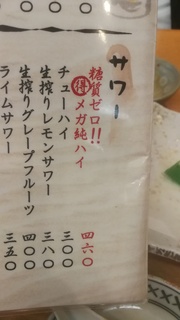 サワー
糖質ゼロ!!
㊕メガ純ハイ 四六〇
チューハイ 三〇〇
生搾りレモンサワー 三八〇
生搾りグレープフルーツ 四〇〇
ライムサワー 三五〇